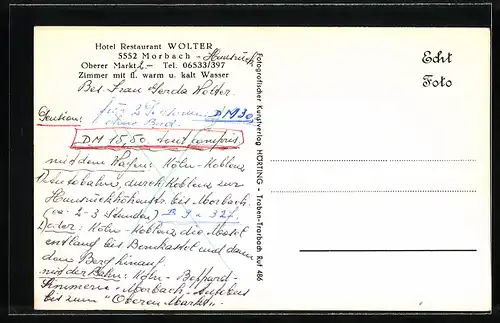 Hotel Restaurant WOLTER
5552 Morbach - Hunsrück
Oberer Markt 2 - Tel. 06533/397
Zimmer mit fl. warm u. kalt Wasser
Bes. Frau Gerda Wolter.
Pension: für 2 Personen DM 30,
ohne Bad.
DM 15,50 tout compris.
mit dem Wagen: Köln-Koblenz
Autobahn, durch Koblenz zur
Hunsrückhöhenstr. bis Morbach.
(ca. 2-3 Stunden) B 9 u 327.
Oder: Köln-Koblenz, die Mosel
entlang bis Bernkastel und dann
den Berg hinauf.
mit der Bahn: Köln - Boppard-
Simmern - Morbach, Autobus
bis zum "Oberen Markt".
Echt
Foto
Fotografischer Kunstverlag HÖRTING - Traben-Trarbach Ruf 486